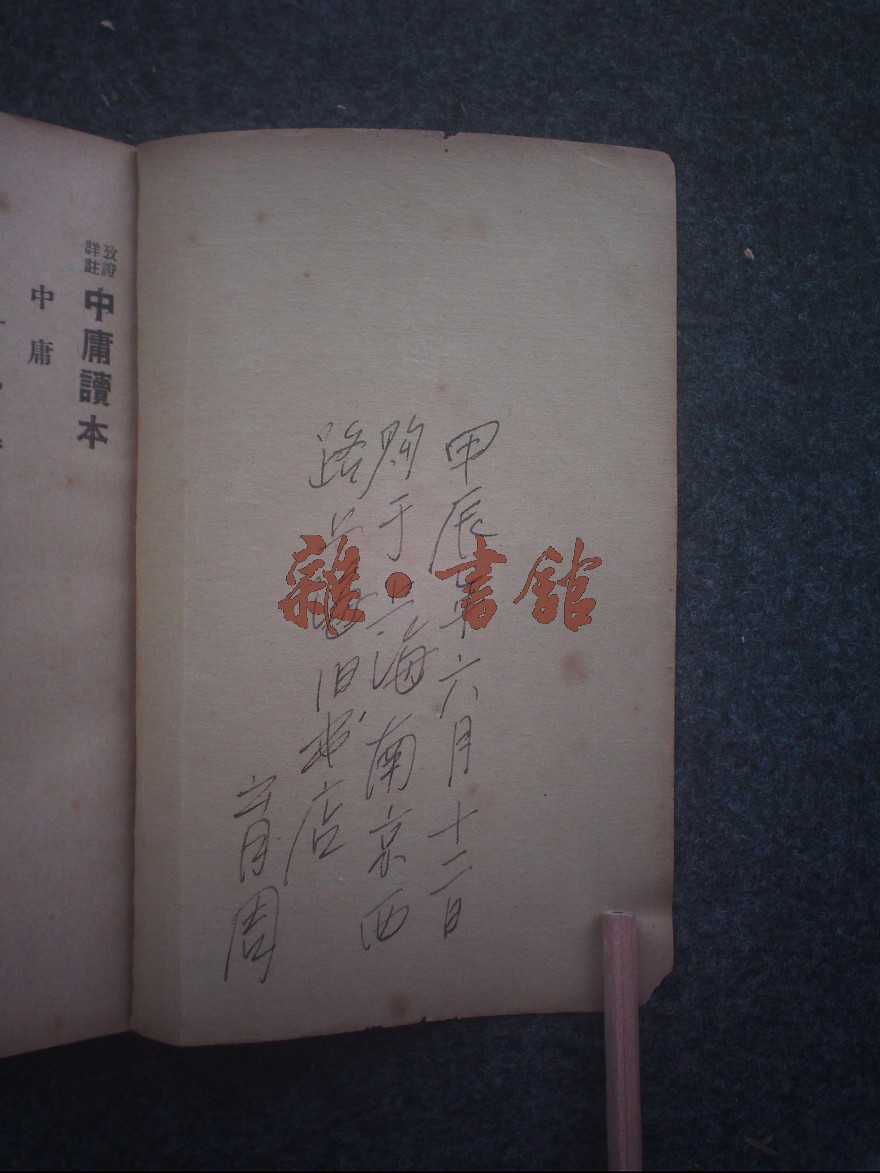 甲辰年六月十二日
购于上海南京西
路上海旧书店
雜·書館
攷證詳註
中庸讀本
中庸